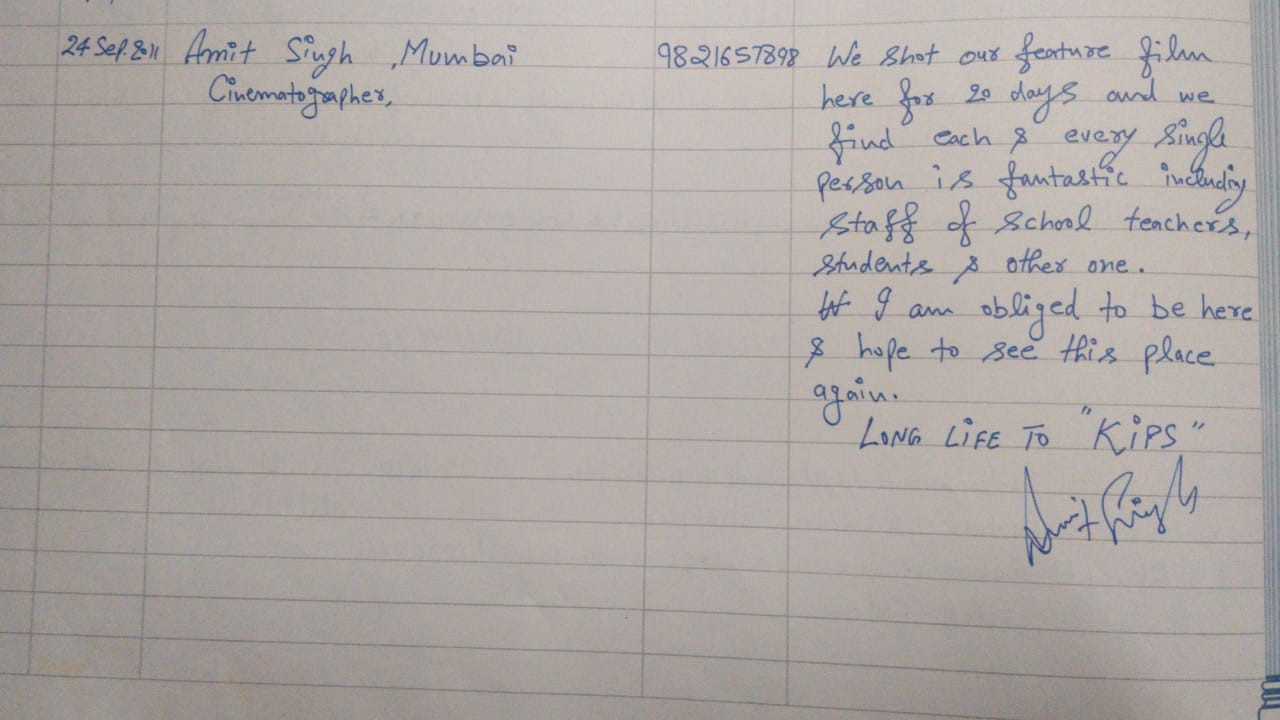 24 Sep. 2011 Amit Singh, Mumbai 9821657898 We shot our feature film
Cinematographer, here for 20 days and we
find each & every single
person is fantastic including
staff of school teachers,
students & other one.
I am obliged to be here
& hope to see this place
again.
LONG LIFE TO "KiPS"
Amit Singh